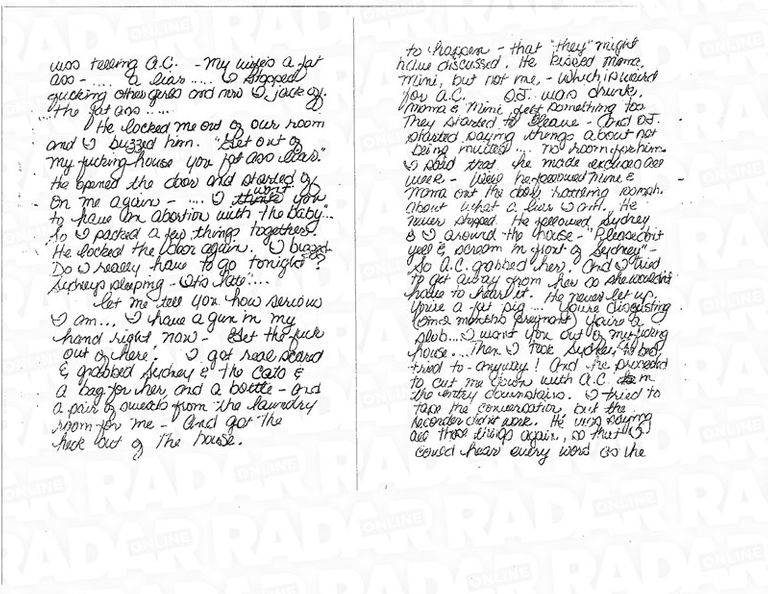 was telling A.C. - My wife's a fat
ass - .... a liar ..... I stopped
fucking other girls and now I jack off.
The fat ass .....
He locked me out of our room
and I buzzed him. "Get out of
my fucking house you fat ass liar."
He opened the door and started
on me again - .... "I want you
to have an abortion with the baby"...
So I packed a few things together.
He locked the door again. I buzzed -
Do I really have to go tonight?
Sydneys sleeping - Its late"....
Let me tell you how serious
I am... I have a gun in my
hand right now - Get the fuck
out of here! I got real scared
& grabbed Sydney & the cats &
a bag for her and a bottle - and
a pair of sweats from the laundry
room for me - And got the
heck out of the house.
to happen - that "they" might
have discussed. He kissed mama,
Mini, but not me, - which is weird
for A.C. O.J. was drunk.
Mama & Mini felt something too.
They started to leave - and O.J.
started saying things about not
being invited .... no room for him.
I said that he made excuses all
week - Well he followed Mini &
Mama out the door, rattling
about what a liar I am. He
never stopped. He followed Sydney
& I around the house - "Please don't
yell & scream in front of Sydney" -
So A.C. grabbed her, and I tried
to get away from her so she wouldn't
have to hear it. He never let up,
You're a fat pig .... You're disgusting
months pregnant) You're a
slob... I want you out of my fucking
house.... Then I took Sydney to bed,
tried to - anyway! And he proceeded
to cut me down with A.C. in
the entry downstairs. I tried to
tape the conversation, but the
recorder didn't work. He was saying
all those things again, so that I
could hear every word as he
RADAR ONLINE